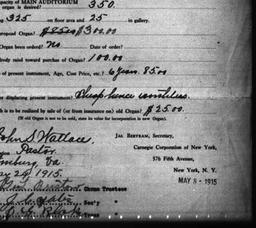 capacity of MAIN AUDITORIUM 350.
organ is desired?
325 on floor area and 25 in gallery.
proposed Organ? $8500 $3000.00
Organ been ordered? No Date of order?
already raised toward purchase of Organ? 100.00
of present instrument, Age, Cost Price, etc.? 6 years. 85.00
for displacing present instrument? Cheap
is to be realized by sale of (or from insurance on) old Organ? $25.00.
(If old Organ is not to be sold, state its value for incorporation in new Organ).
John S Wallace
Pastor.
Va.
24, 1915.
Chmn Trustees
Sec'y "
Treas "
JAS BERTRAM, Secretary,
Carnegie Corporation of New York,
576 Fifth Avenue,
New York, N. Y.
MAY 8 - 1915